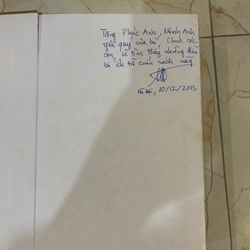 Tặng Phúc Anh, Minh Anh
yêu quý của bố, Chúc các
con sẽ tìm thấy những điều
bổ ích từ cuốn sách này
Hà Nội, 10/12/2013